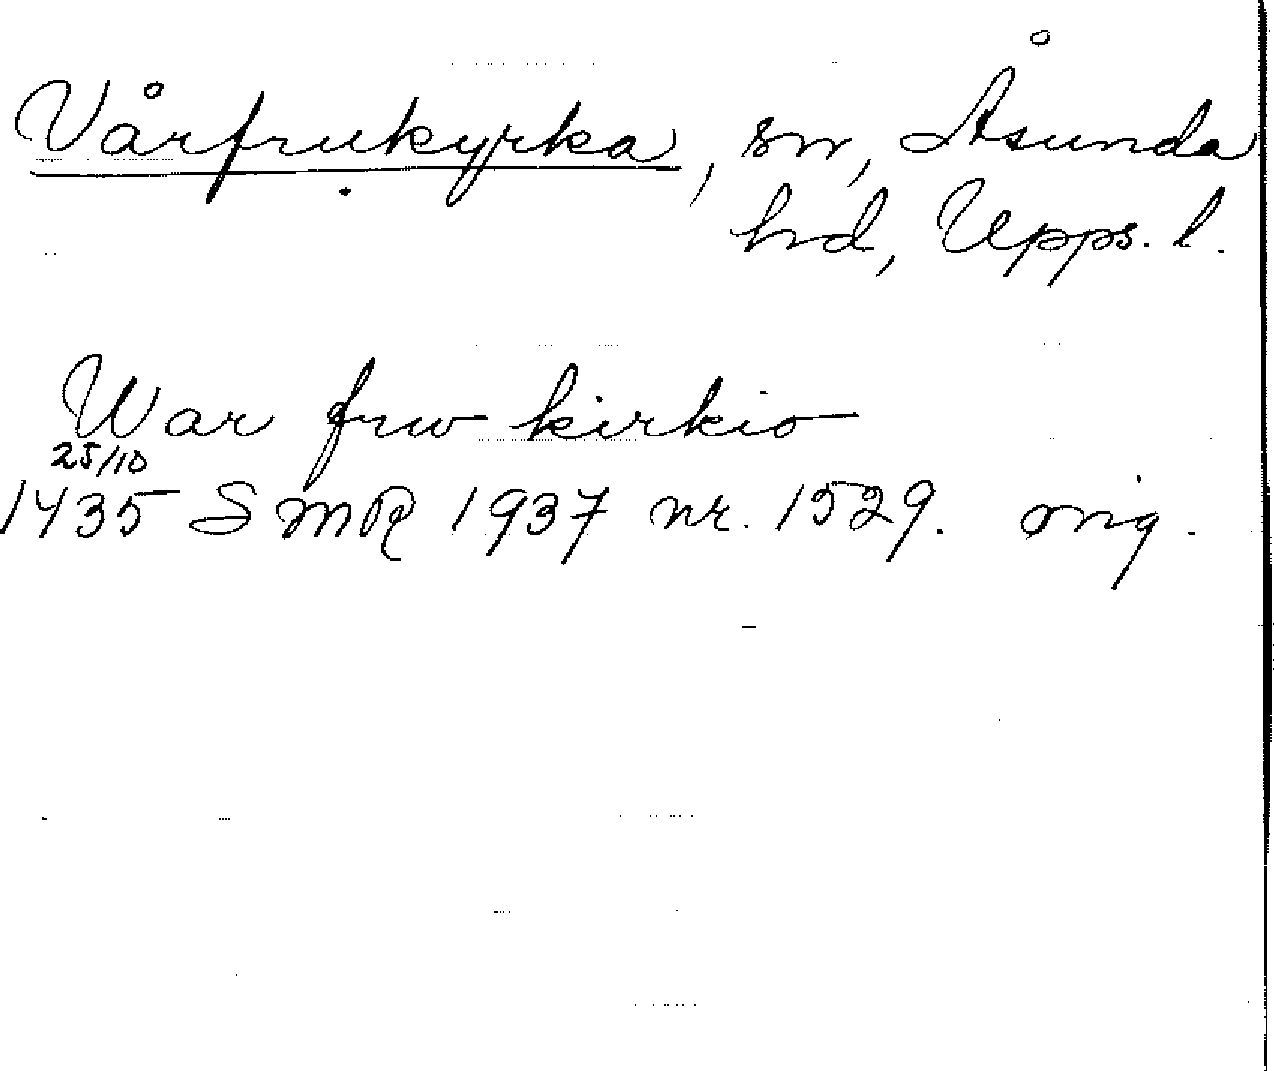 Vårfrukyrka, sn, Åsunda
hd, Upps. l.
War frw kirkio
25/10
1435 SMR 1937 nr. 1529. orig.